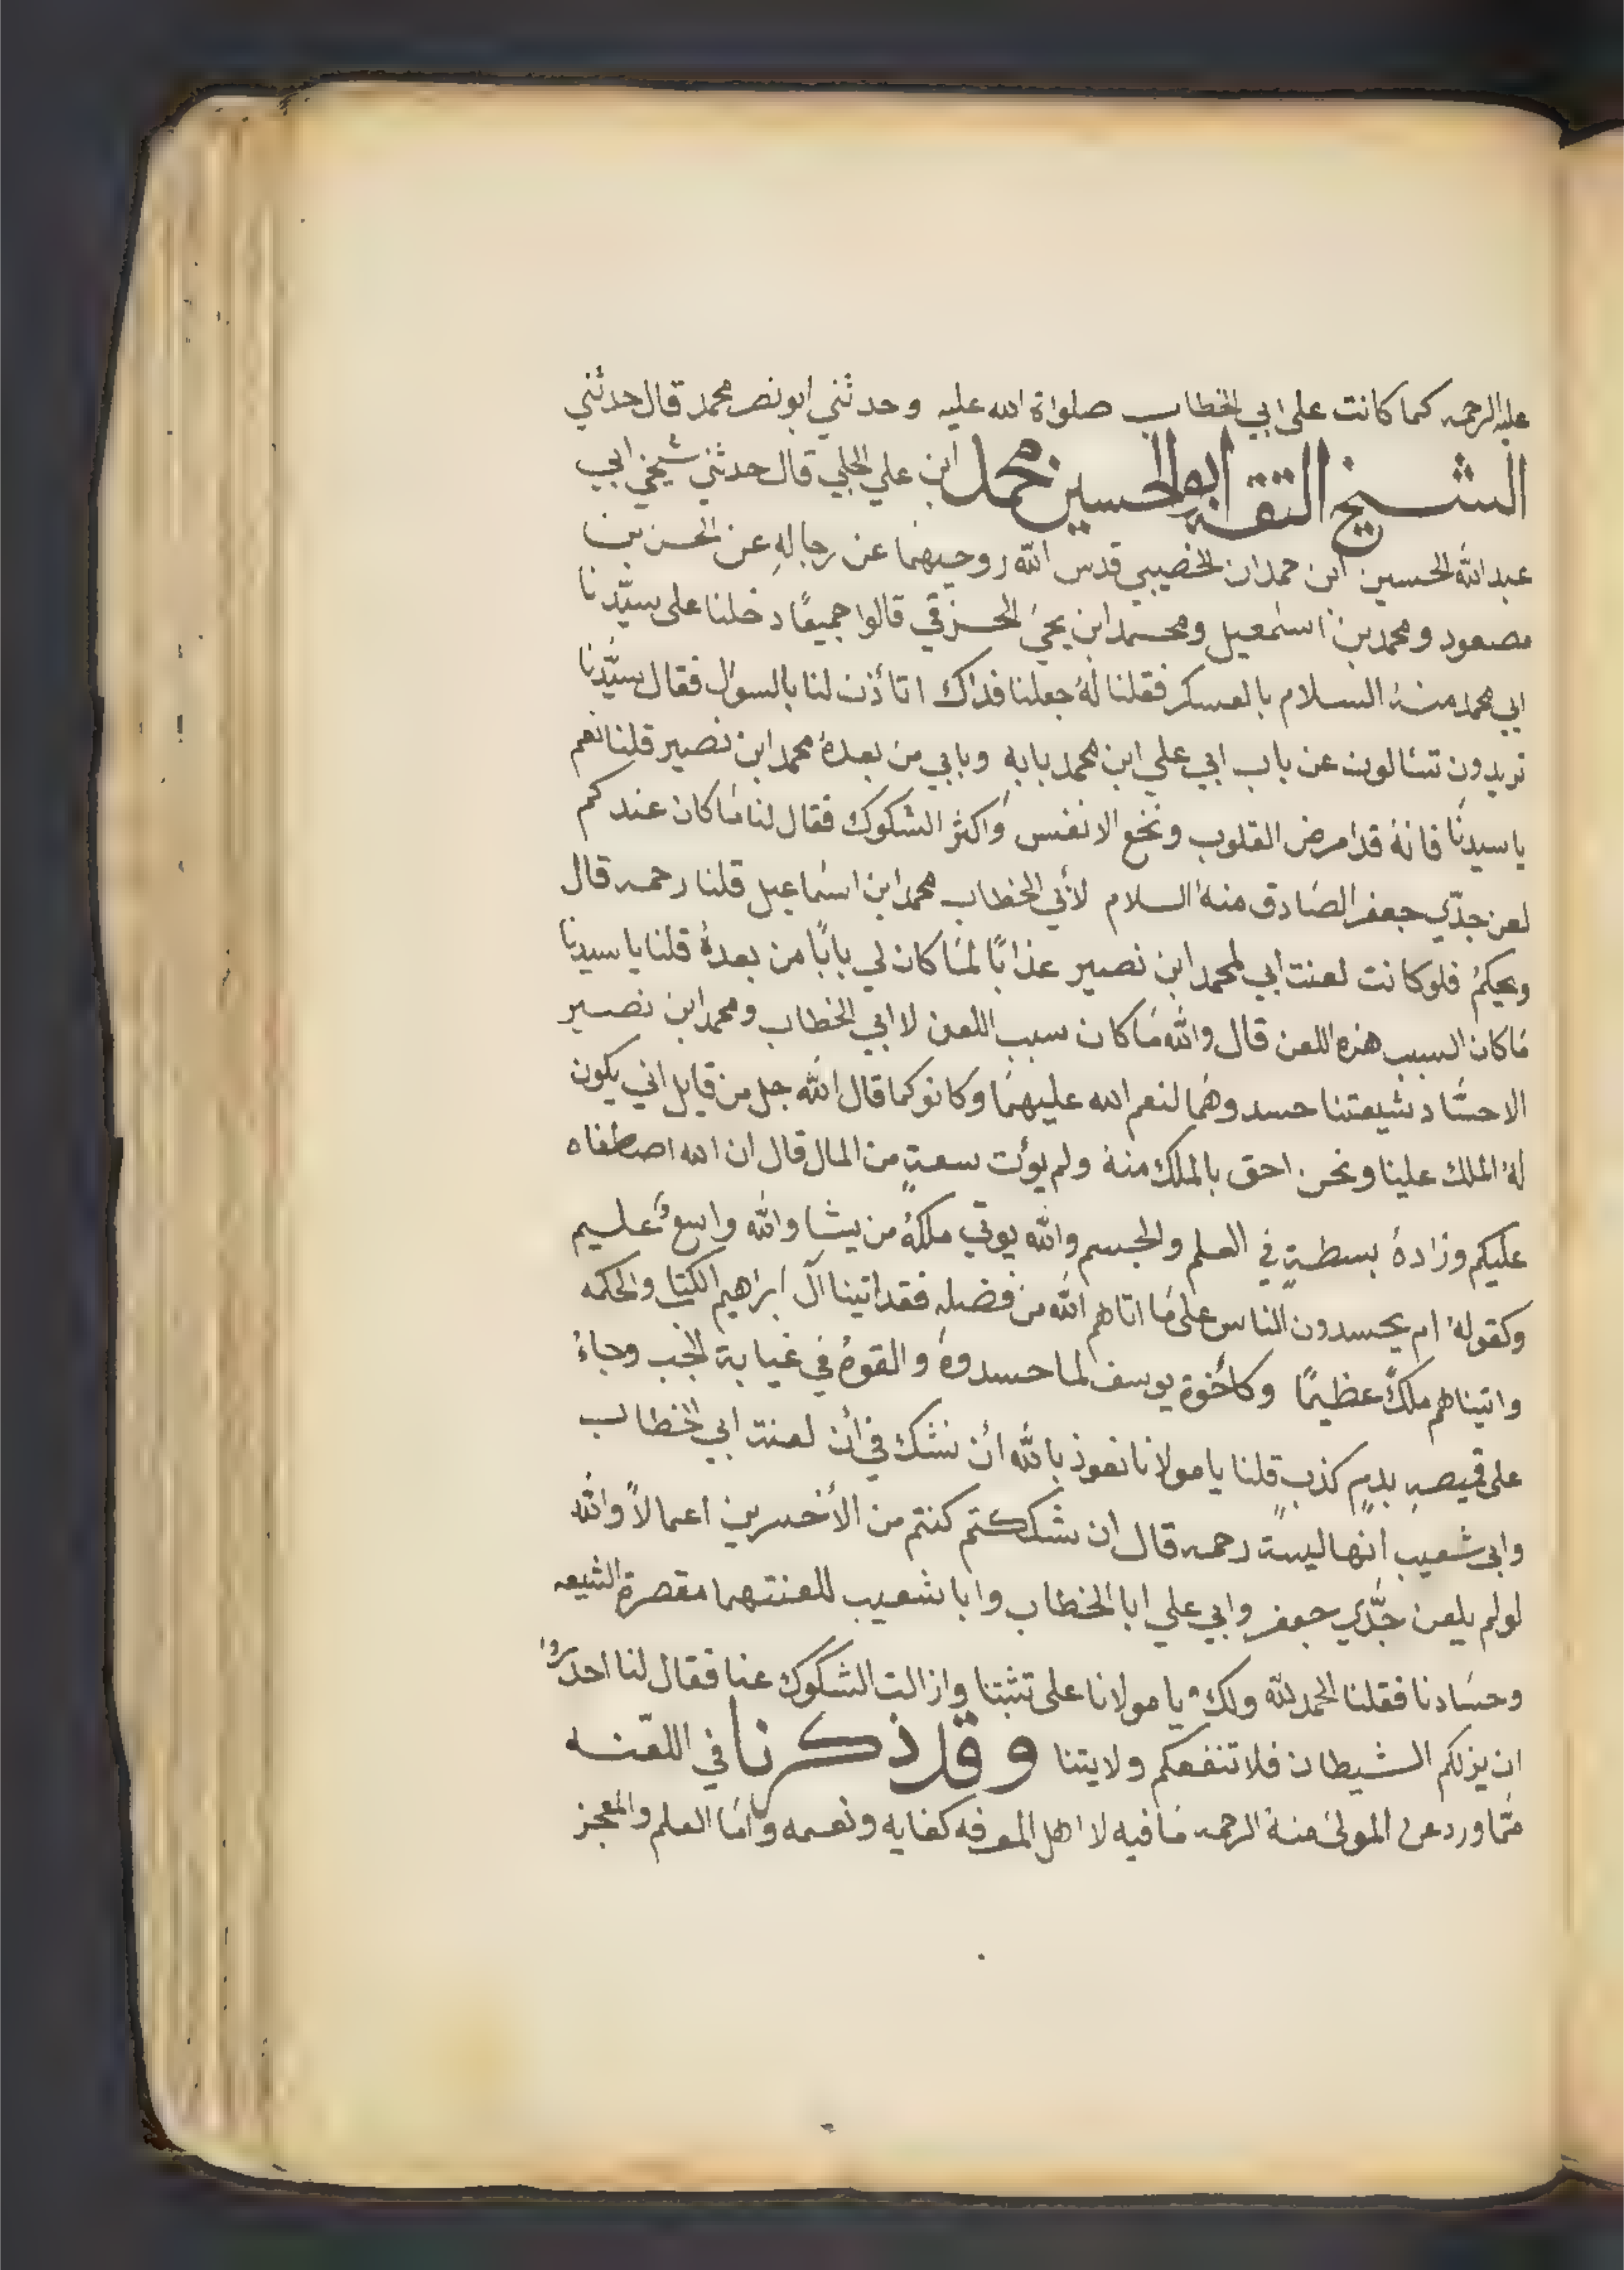 عليه الرحمه كما كانت على ابي الخطاب صلواة الله عليه وحدثني ابو نصر محمد قال حدثني
الشيخ الثقه ابو الحسين محمد ابن علي الجلي قال حدثني شيخي ابي
عبد الله الحسين ابن حمدان الخصيبي قدس الله روحيهما عن رجاله عن الحسن بن
مصعود ومحمد بن اسمعيل ومحمد ابن يحيى الخرقي قالوا جميعًا دخلنا على سيّدنا
ابي محمد منهُ السلام بالعسكر فقلنا لهُ جعلنا فداك اتأذن لنا بالسوال فقال سيّدنا
تريدون تسٔالون عن باب ابي علي ابن محمد بابه وبابي من بعدهُ محمد ابن نصير قلنا نعم
يا سيدنا فانهُ قد امرض القلوب ونخع الانفس واكثر الشكوك فقال لنا ما كان عندكم
لعن جدّي جعفر الصادق منه السلام لأبي الخطاب محمد ابن اسماعيل قلنا رحمه قال
ويحكمُ فلو كانت لعنت ابي لمحمد ابن نصير عذابًا لمَا كان لي بابًا من بعدهُ قلنا يا سيدنا
مَا كان السبب هذه اللعن قال والله مَا كان سبب اللعن لا ابي الخطاب ومحمد ابن نصير
الا حسّاد شيعتنا حسدوهما لنعم الله عليهما وكانو كما قال الله جل من قايل اني يكون
لهُ الملك علينا ونحن احق بالملك منهُ ولم يؤت سعةٍ من المال قال ان الله اصطفاه
عليكم وزادهُ بسطةٍ في العلم والجسم والله يوتي ملكهُ من يشا والله واسعٌ عليم
وكقولهُ ام يحسدون الناس على مَا اتاهم الله من فضله فقد اتينا آل ابراهيم الكتاب والحكمه
واتيناهم ملكً عظيمًا وكأخوة يوسف لما حسدوهُ والقوهُ في غيابة الجب وجاءُ
على قميصهِ بدمٍ كذبٍ قلنا يا مولانا نعوذ بالله أن نشك في أن لعنت ابي الخطاب
وابي شعيب انها ليسةً رحمه قال ان شككتم كنتم من الأخسرين اعمالاً والله
لو لم يلعن جدّي جعفر وابي علي ابا الخطاب وابا شعيب للعنتهما مقصرة الشيعه
وحسَادنا فقلنا الحمد لله ولك يا مولانا على تثبتنا وازالت الشكوك عنا فقال لنا احذروا
ان يزلكم الشيطان فلا تنفعكم ولايتنا وقد ذكرنا في اللعنه
ممّا ورد عن المولى منهُ الرحمه مَا فيه لا اهل المعرفه كفايه ونعمه وامَا العلم والمعجز